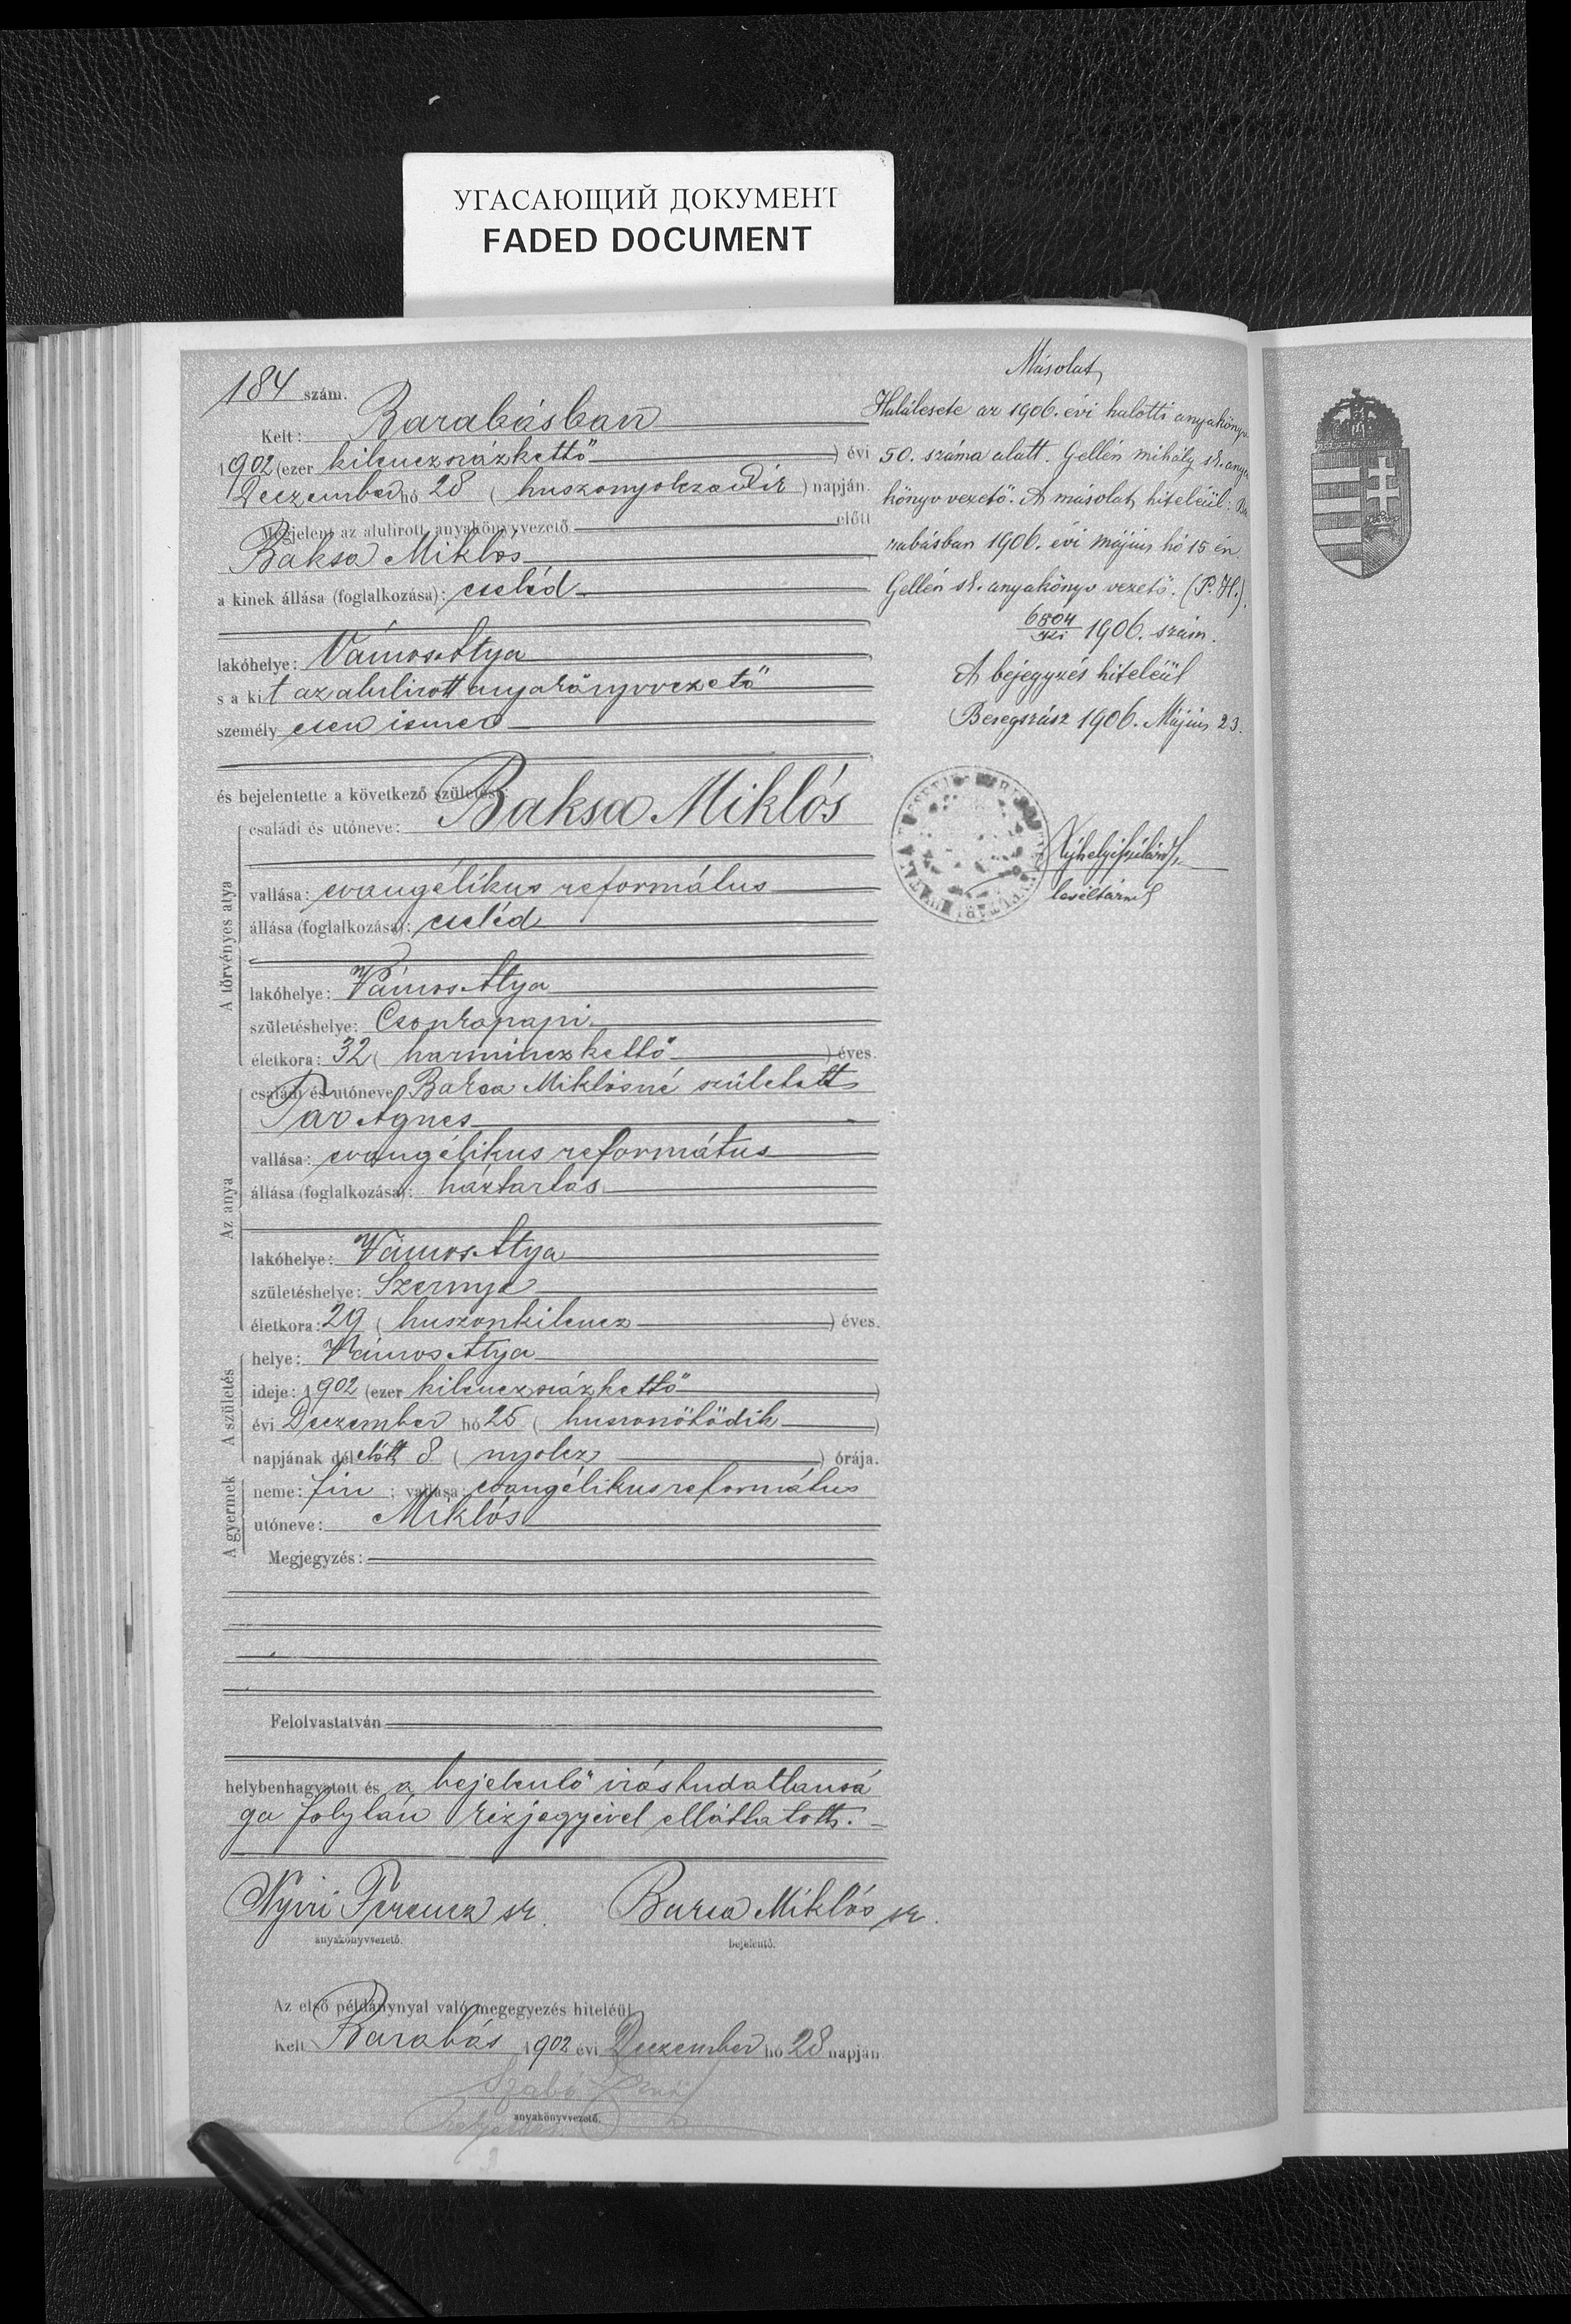 УГАСАЮЩИЙ ДОКУМЕНТ
FADED DOCUMENT
184 szám.
Kelt: Barabásban
1902 (ezer kilenczszázkettő ) évi
Deczember hó 28 ( huszonyolczadik ) napján.
Megjelent az alulirott anyakönyvvezető előtt
Baksa Miklós
a kinek állása (foglalkozása): cseléd
lakóhelye: Vámos Atya
s a kit az alulirott anyakönyvvezető
személyesen ismer
és bejelentette a következő születést:
A törvényes atya
családi és utóneve: Baksa Miklós
vallása: evangélikus református
állása (foglalkozása): cseléd
lakóhelye: Vámos Atya
születéshelye: Csonkapapi
életkora: 32 ( harminczkettő ) éves.
Az anya
családi és utóneve: Baksa Miklósné született
Pap Ágnes
vallása: evangélikus református
állása (foglalkozása): háztartás
lakóhelye: Vámos Atya
születéshelye: Szernye
életkora: 29 ( huszonkilencz ) éves.
A születés
helye: Vámos Atya
ideje: 1902 (ezer kilenczszázkettő )
évi Deczember hó 25 ( huszonötödik )
napjának délelőtt 8 ( nyolcz ) órája.
A gyermek
neme: fiu ; vallása: evangélikus református
utóneve: Miklós
Megjegyzés:
Felolvastatván
helybenhagyatott és a bejelentő irástudatlansá
ga folytán kézjegyével elláttatott.
Nyiri Ferencz sk. Baksa Miklós sk.
anyakönyvvezető. bejelentő.
Az első példánynyal való megegyezés hiteléül
Kelt Barabás 1902 évi Deczember hó 28 napján
Szabó Ernő
anyakönyvvezető.
helyettes
Másolat,
Halálesete az 1906. évi halotti anyakönyv
50. száma alatt. Gellén Mihály sk. anya
könyv vezető. A másolat hiteléül: Ba
rabásban 1906. évi május hó 15 én
Gellén sk. anyakönyv vezető. (P. H.).
6804 1906. szám.
A bejegyzés hiteléül
Beregszász 1906. Május 23.
levéltárnok